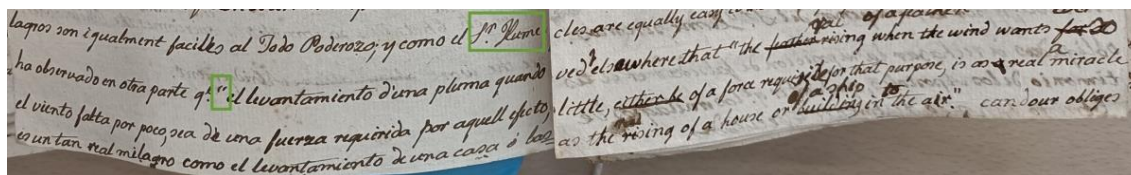 lagros son igualment faciles al Todo Poderozo; y como el Sr. Hume
ha observado en otra parte qe. "el levantamiento d'una pluma quando
el viento falta por poco, sea de una fuerza requerida por aquell efecto,
es un tan real milagro como el levantamiento de una casa ó
cles are equally easy
ved elsewhere that "the feather rising when the wind wants
real of a feather
little, either be of a force requisite for that purpose, is as a real miracle
of a ship
as the real rising of a house or building in to the air." candour obliges